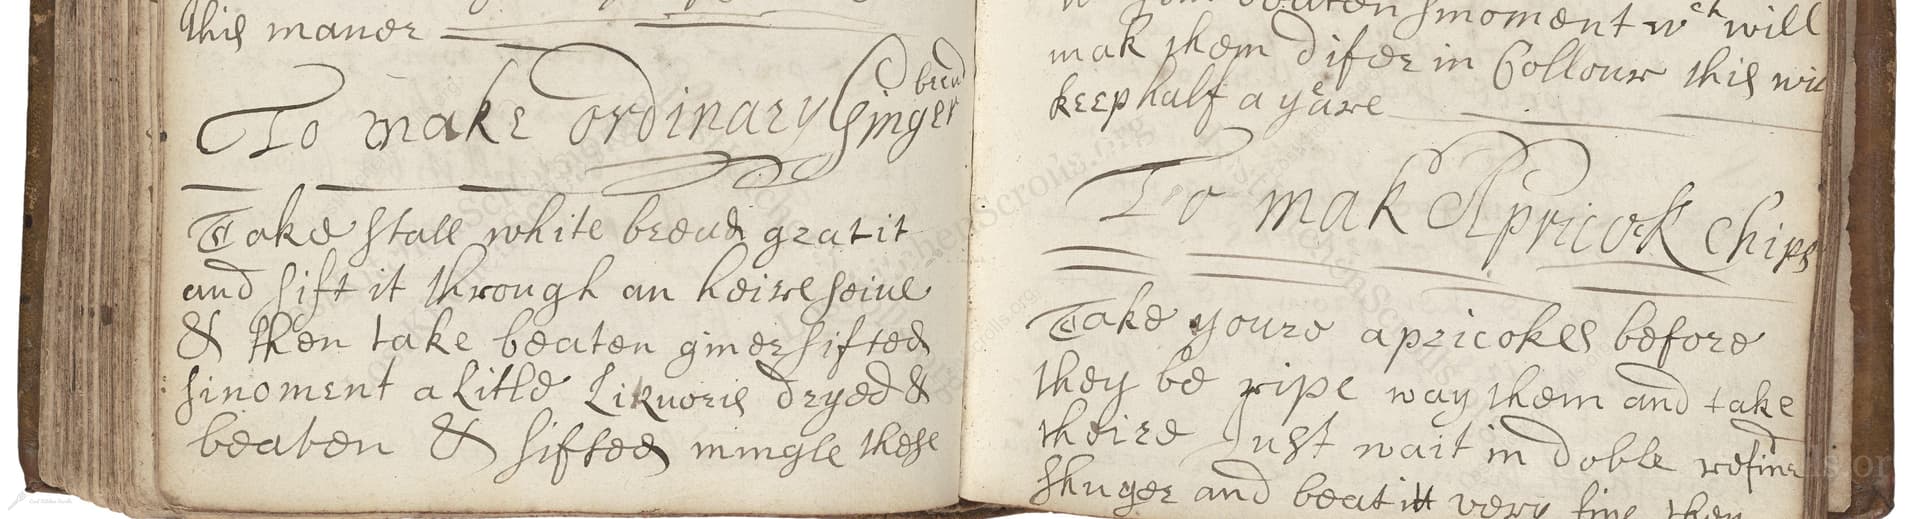 this maner
To make ordinary Ginger
bread
Take stall white bread grat it
and sift it through an heire seive
& then take beaten giner sifted
sinoment a Litle Likuoris dryed &
beaten & sifted mingle these
beaten sinoment wch will
mak them difer in Collour this wil
keep half a yeare
To mak Apricok Chips
Take youre apricokes before
they be ripe way them and take
theire Just wait in doble refine
shuger and beat it very fine then